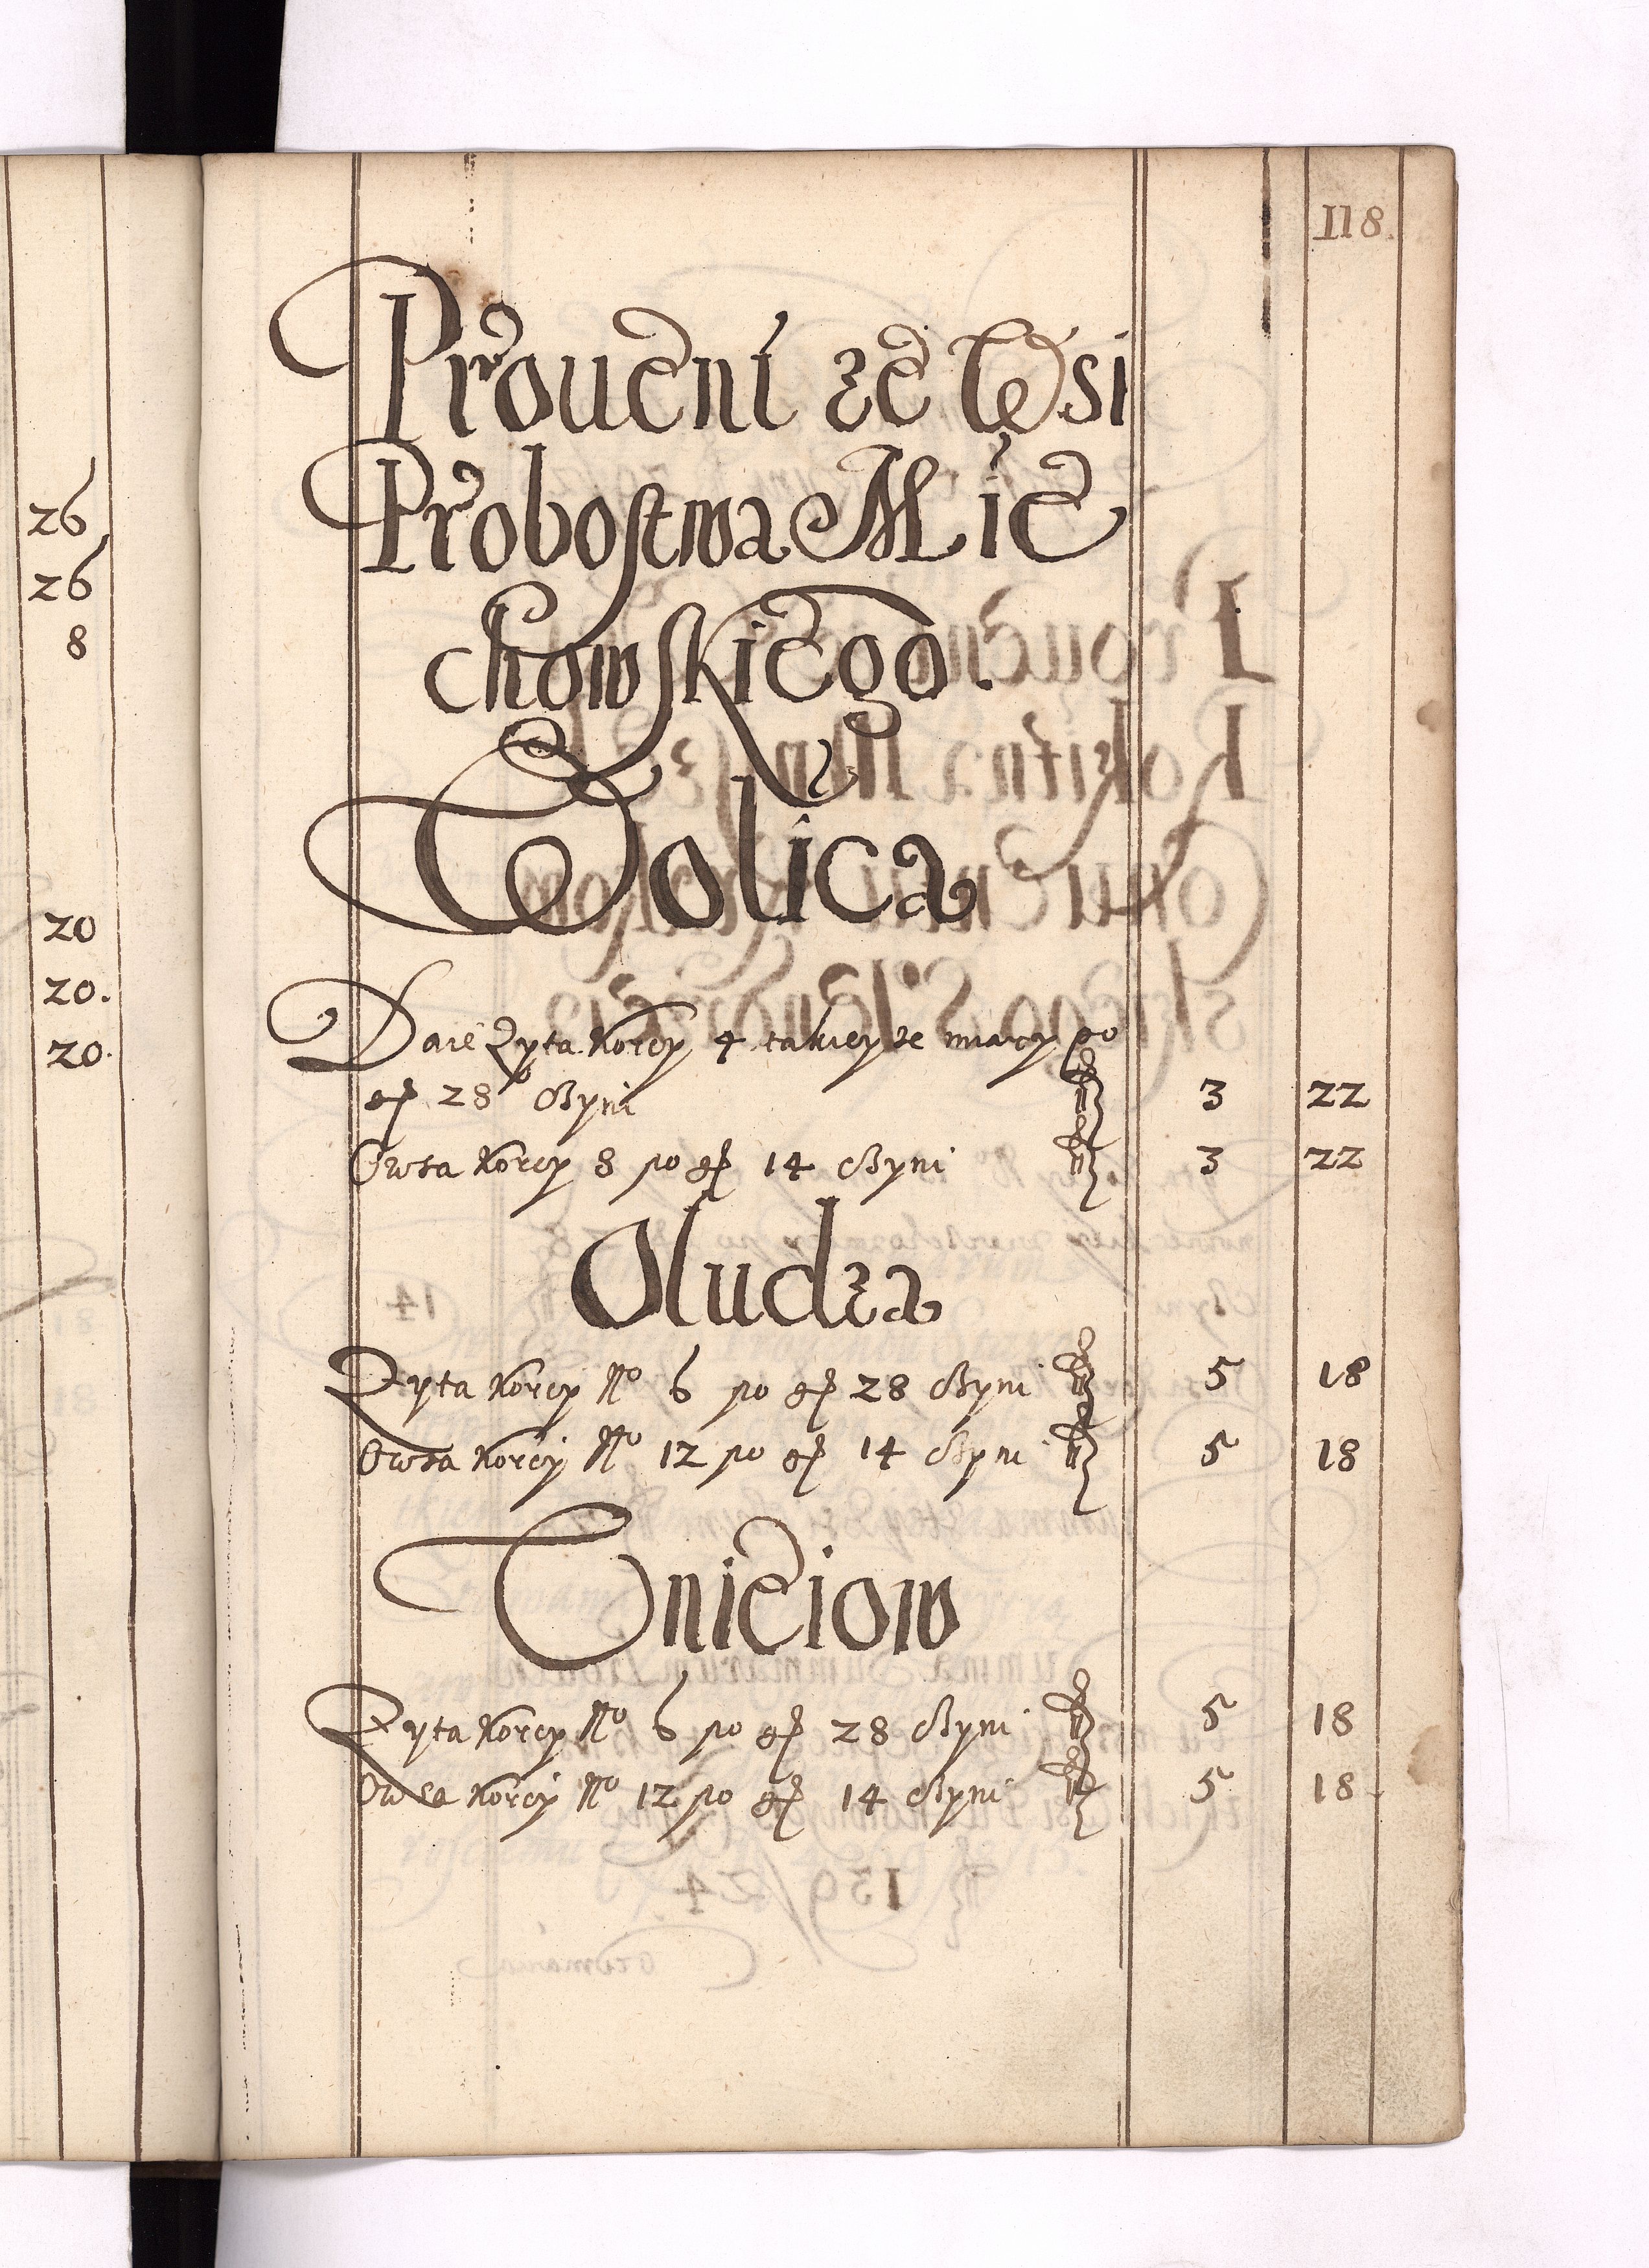 118.
26
26
8
20
20.
20.
Prouent ze Wsi
Probostwa Mie
chowskiego.
Tolica
Daie Zyta Korcy 4 takieyze miary po
gr 28 czyni fl 3 22
Owsa Korcy 8 po gr 14 czyni fl 3 22
Oludza
Zyta Korcy No 6 po gr 28 czyni fl 5 18
Owsa Korcy No 12 po gr 14 czyni fl 5 18
Cniciow
Zyta Korcy No 6 po gr 28 czyni fl 5 18
Owsa Korcy No 12 po gr 14 czyni fl 5 18